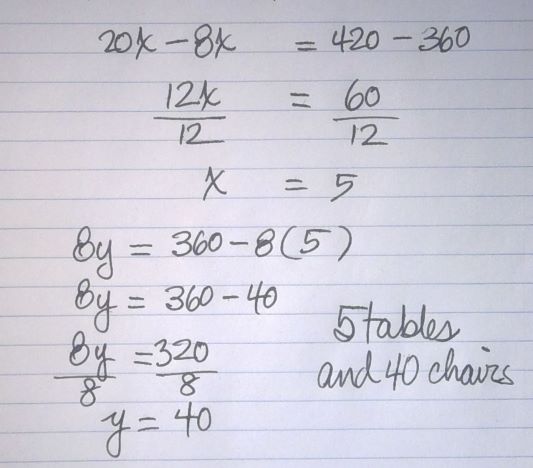 20x - 8x = 420 - 360
12x/12 = 60/12
x = 5
8y = 360 - 8(5)
8y = 360 - 40
8y/8 = 320/8
y = 40
5 tables
and 40 chairs